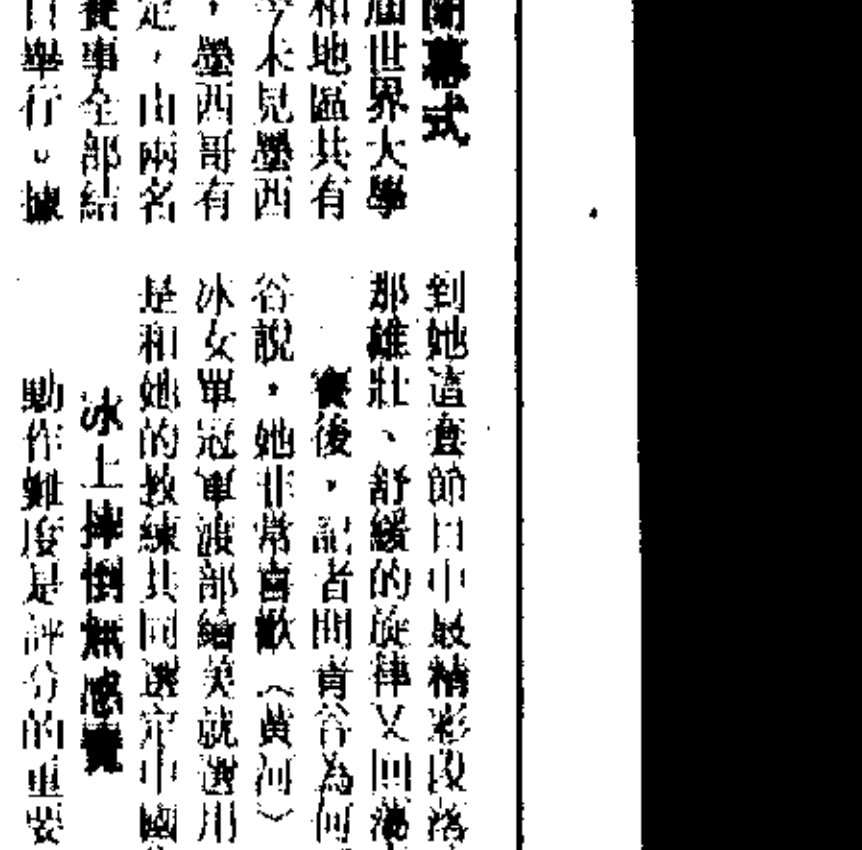 開幕式
屆世界大學
和地區共有
今未見墨西
，墨西哥有
定，由兩名
賽事全部結
日舉行。據
到她這套節目中最精彩段落
那雄壯、舒緩的旋律又回蕩
賽後，記者問青谷為何
谷說，她非常喜歡〈黃河〉
冰女單冠軍渡部繪美就選用
是和她的教練共同選定中國
冰上摔倒無感覺
動作難度是評分的重要